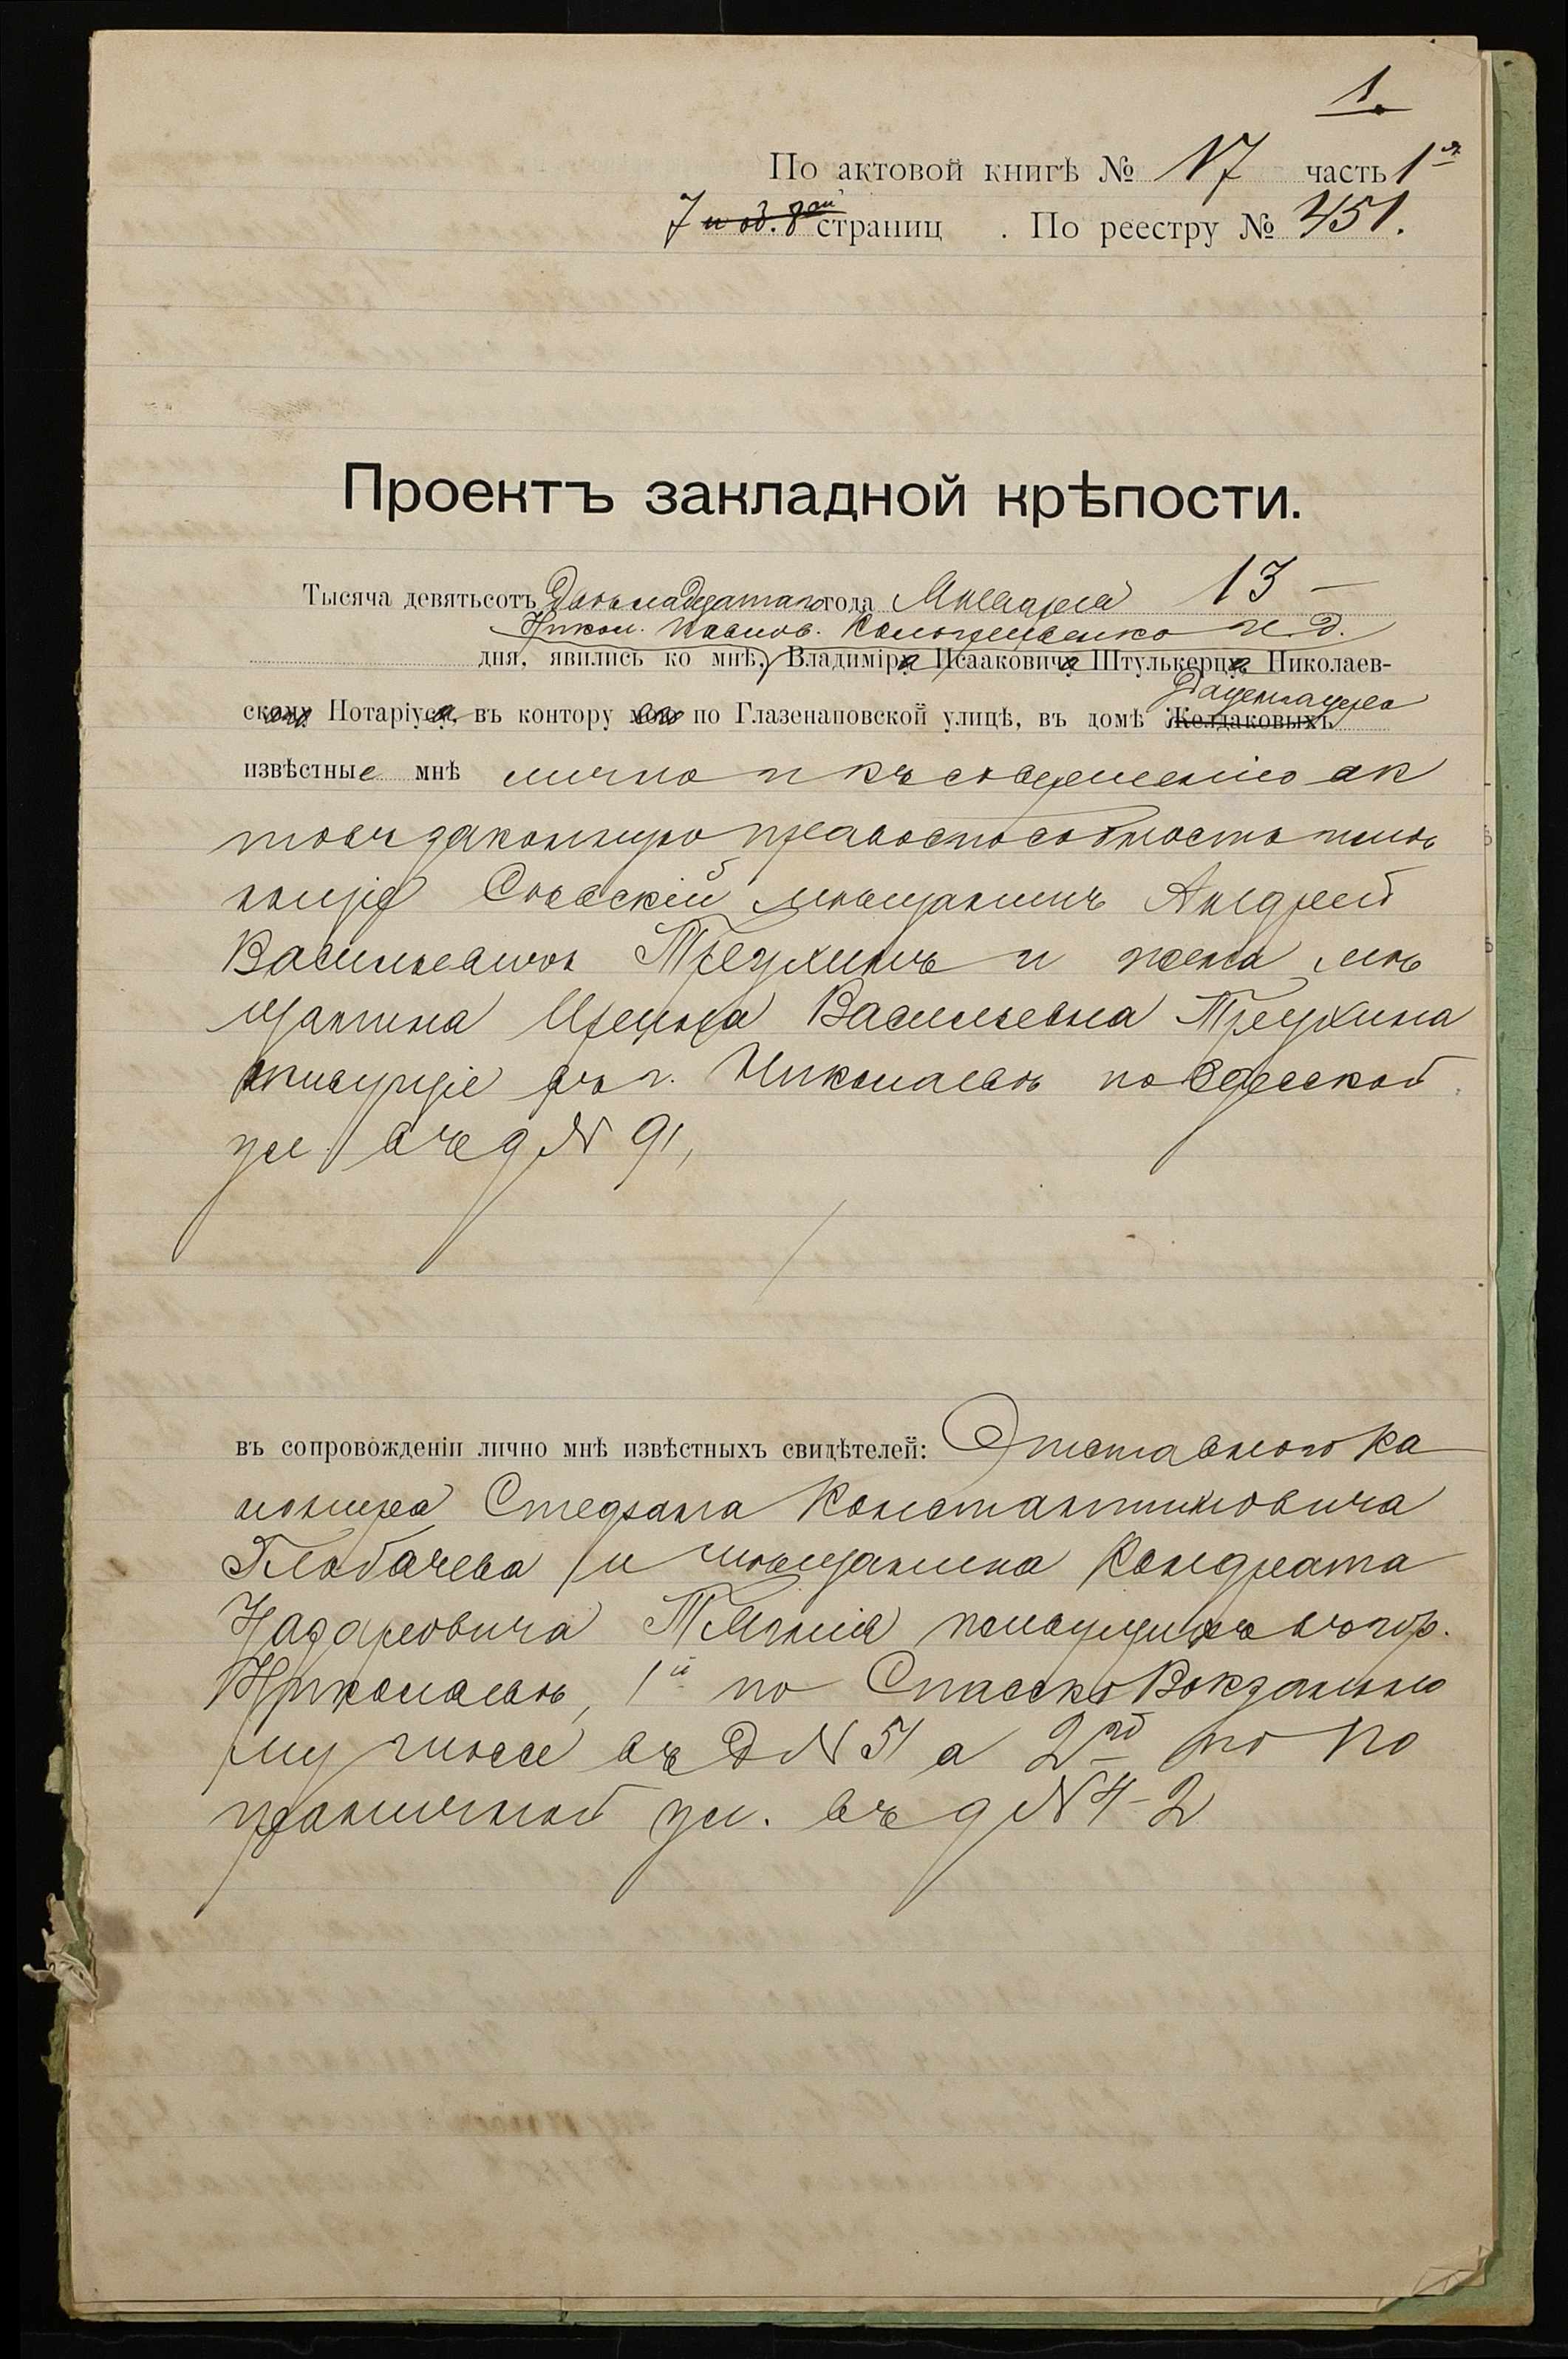 1.
По актовой книгѣ № 17 часть 1ая
7 и об. 8ой страниц . По реестру № 451.
Проектъ закладной крѣпости.
Тысяча девятьсотъ Двѣнадцатаго года Января 13 —
Никол. Иванов. И. д.
дня, явились ко мнѣ, Владиміра Исааковича Штулькерца Николаев-
скаго Нотаріуса, въ контору его по Глазенаповской улицѣ, въ домѣ Желдаковыхъ
извѣстные мнѣ лично и къ совершенію ак
товъ законную правоспособность имѣ
ющіе мѣщанинъ Андрей
Васильевичъ Треухинъ и жена мѣ
щанина Васильевна Треухина
живущіе въ г. Николаевѣ по Одесской
ул. въ д № 91,
въ сопровожденіи лично мнѣ извѣстныхъ свидѣтелей: Отставного ка
нонира Стефана Константиновича
Глобачева и мѣщанина Кондрата
Назаровича живущихъ въ гор.
Николаевѣ, 1й по Спасско Вокзально
му шоссе въ д № 51 а 2ой по По
граничной ул. въ д № 4-2